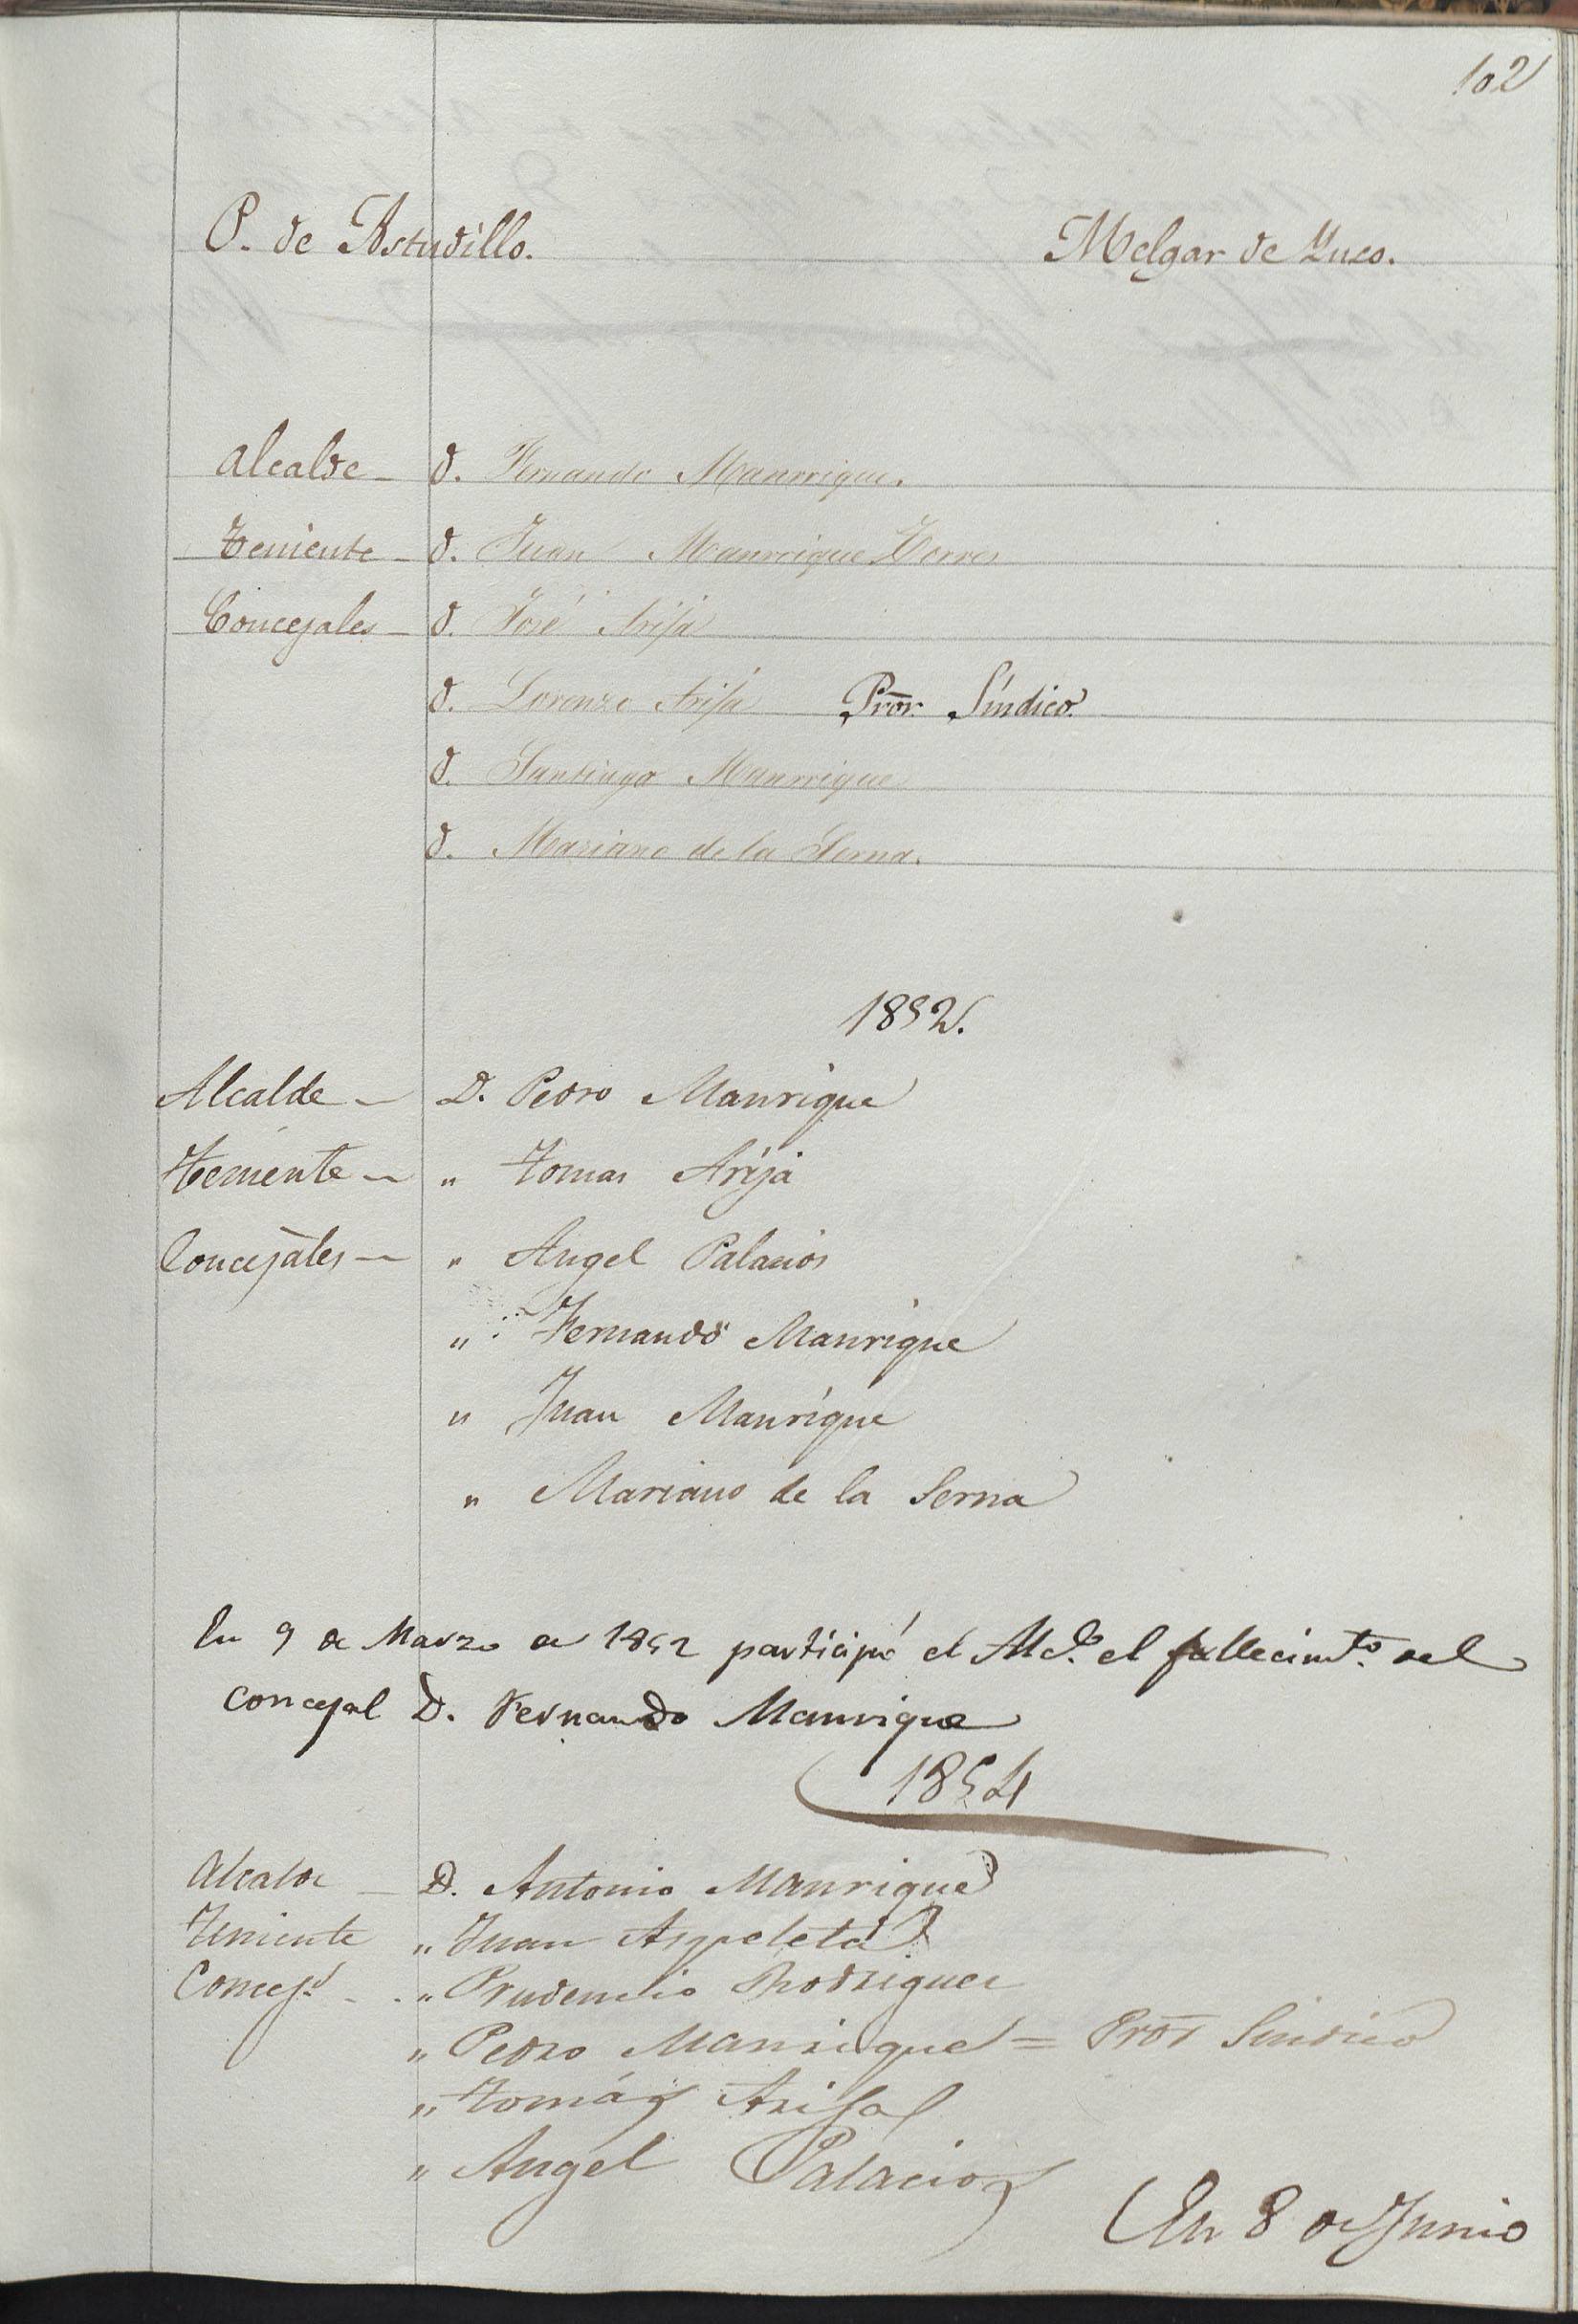 102
P. de Astudillo. Melgar de Yuso.
Alcalde - D. Fernando Manrrique.
Teniente - D. Juan Manrrique Torres
Concejales - D. José Arija
D. Lorenzo Arija Pror. Síndico.
D. Santiago Manrrique
D. Mariano de la Serna.
1852.
Alcalde - D. Pedro Manrique
Teniente - " Tomas Arija
Concejales - " Angel Palacios
" Fernando Manrique
" Juan Manrique
" Mariano de la Serna
En 9 de Marzo de 1852 participó el Alcde. el fallecimto. del
concejal D. Fernando Manrique
1854
Alcalde - D. Antonio Manrique
Teniente " Juan Aspeleta
Concejs. - " Prudencio Rodriguez
" Pedro Manrique = Pror Sindico
" Tomás Arija
" Angel Palacios
En 8 de Junio